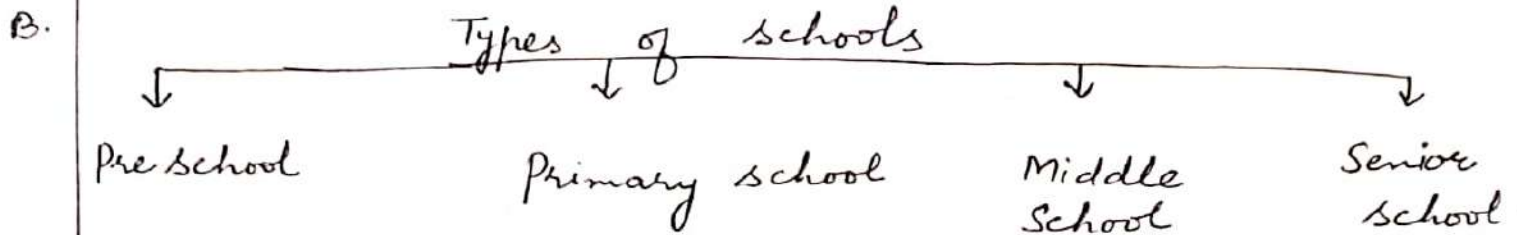 B.
Types of schools
Pre school
Primary school
Middle
School
Senior
school